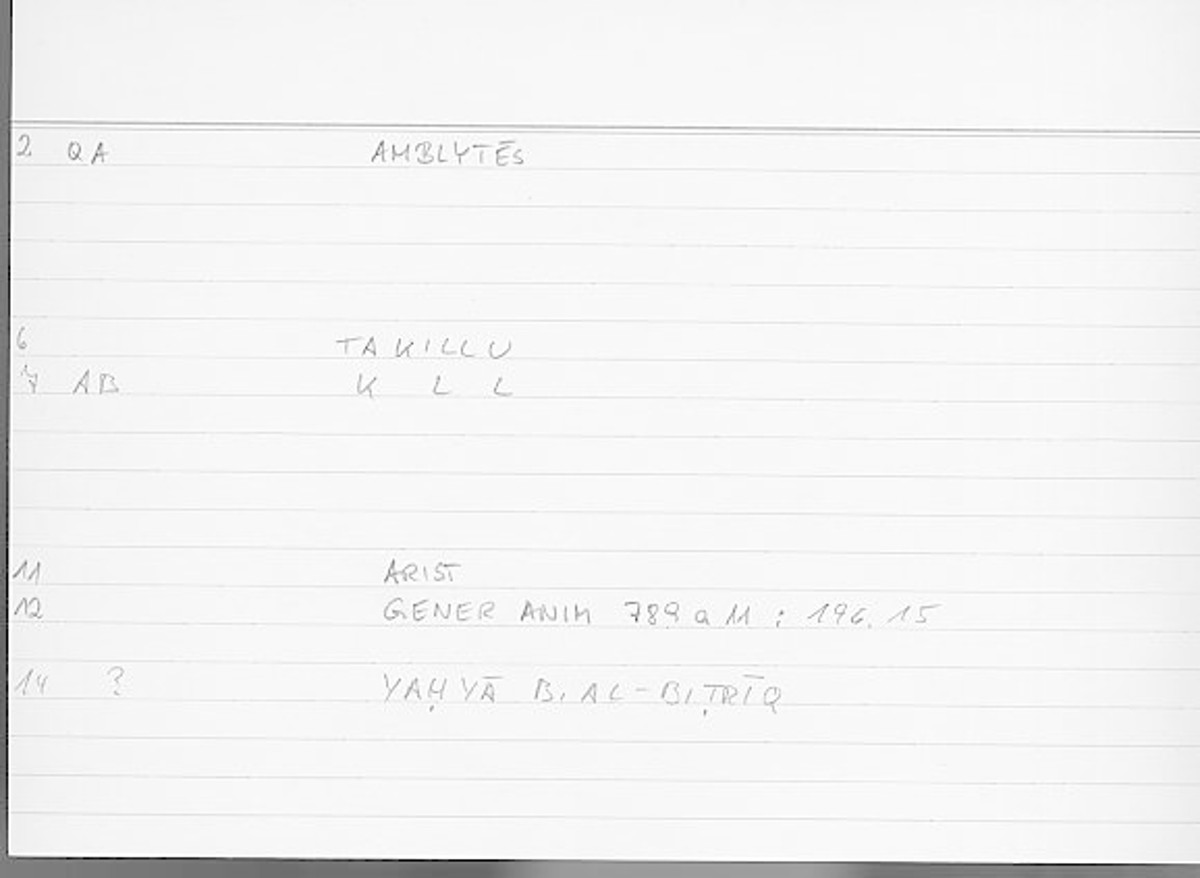 2 QA AMBLYTĒS
6 TAKILLU
7 AB K L L
11 ARIST
12 GENER ANIM 789 a 11 : 196. 15
14 ? YAḤYĀ B. AL-BIṬRĪQ